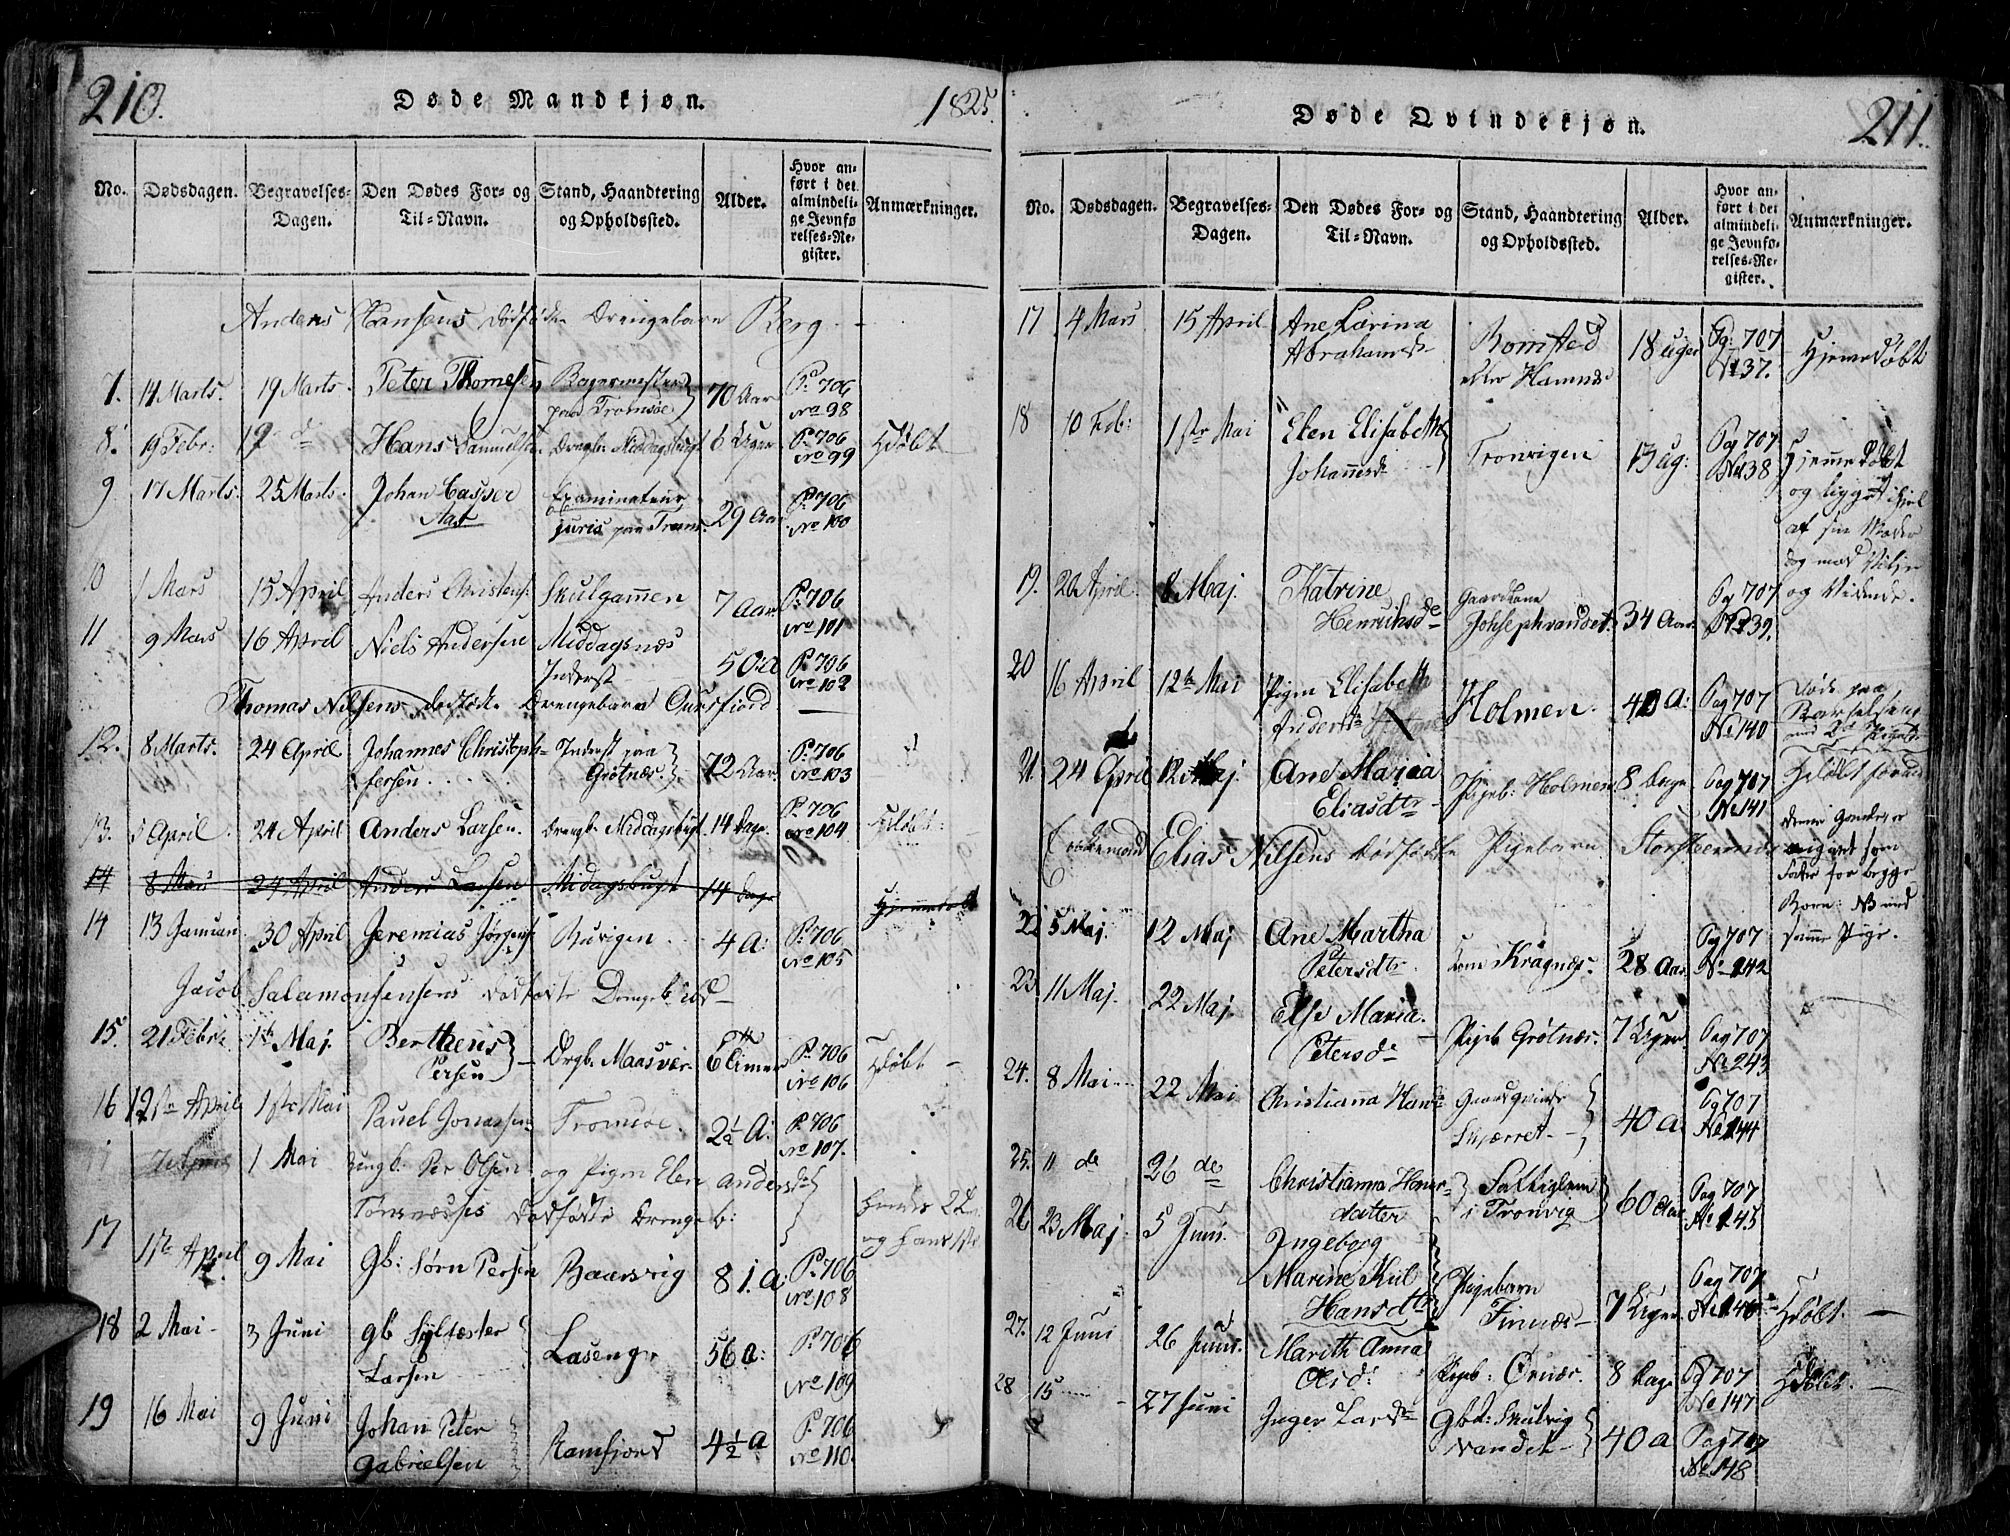 210.
Døde Mandkjøn.
1825.
No.
Dødsdagen.
Begravelses-Dagen.
Den Dødes For- og Til-Navn.
Stand, Haandtering og Opholdssted.
Alder.
Hvor anført i det almindelige Jevnførelses-Register.
Anmærkninger.
Anders Hansens dødfødte Drengebarn Berg
7. 14 Marts. 19 Marts. Peter Thomesen Bagermester paa Tromsøe 70 Aar P. 706 No 98
8. 19 Febr: 19 d Hans Samuelsen Drengb. Middagsbugt 6 Uger P. 706 No 99 Hdøbt
9 17 Marts. 25 Marts. Johan Casper Aas Examinatus juris paa Troms. 29 Aar P. 706 No 100
10 1 Mars 15 April Anders Christens: Skulgammen 7 Aar P. 706 No 101
11 9 Mars 16 April Niels Andersen Middagsnæs Inderst 50 a P. 706 No 102
Thomas Nilsens dødfødte Drengebarn Ouvsfiord
12. 8 Marts. 24 April Johannes Christophersen Inderst paa Grøtnæs. 72 Aar P. 706 No 103
13. 5 April 24 April Anders Larsen. Drengb. Middagsbugt 14 Dage. P. 706 No 104 Hdøbt
14 8 Mars 24 April Anders Larsen Midagsbugt 14 Dage Hjemmedøbt
14 13 Januari 30 April Jeremias Jørgens: Burigen 4 A: P. 706 No 105
Jacob Salamonsensens dødfødt Drengeb.
15. 21 Febr. 1ste Maj. Berthens Persen Drgb. Maasvær 6 Timer P. 706 No 106 Hdøbt
16 12te April 1ste Mai Pauel Jonassen Tromsøe. 2½ A: P. 706 No 107.
1 Mai Ungk. Per Olsen og Pigen Elen Andersd Tønsnæsses dødfødte Drengeb:
17 17de April 9 Mai Gb: Sørn Persen Baarvig 81. a P. 706 No 108
18 2 Mai 3 Juni gb Sylfæster Larsen Lasenge 56 a: P. 706 No 109
19 16 Mai 9 Juni Johan Peter Gabrielsen Ramfjord 4½ a P. 706 No 110.
211.
Døde Qvindekjøn.
No.
Dødsdagen.
Begravelses-Dagen.
Den Dødes For- og Til-Navn.
Stand, Haandtering og Opholdssted.
Alder.
Hvor anført i det almindelige Jevnførelses-Register.
Anmærkninger.
17 4 Mars 15 April Ane Larina Abrahamsd 18 uger Pg: 707 No 137. Hjemedøbt
18 10 Feb: 1ste Mai Elen Elisabeth Johannesd Tronvigen 13 ug: Pag 707 No 138 Hjemmedøbt og ligget ihjel af sin Moder dog mod Vilje og Vidende.
19. 20 April. 8 Maj. Katrine Henrichsd Gaardkone Johsephvandet. 34 Aar Pag 707 No 139.
20 16 April 12te Mai Pigen Elisabeth Andersd Holmen. 40 A: Pag 707 No 140 Døde paa Barselseng
21. 24 April 12 Maj Ane Maria Eliasdtr Pigeb: Holmen 8 Dage Pag 707 No 141
Elias Nilsens dødfødte Pigebarn Storsteennes
Denne er angivet som Fader for begge Børn: NB med samme Pige.
22 5 Maj. 12 Maj Ane Martha Petersdtr. Kone Kragnæs. 28 Aar Pag 707 No 142
23 11 Maj. 22 Maj. Else Maria Petersd Pigeb Grøtnæs. 7 Uger. Pag 707 No 243
24. 8 Mai 22 Mai Christianna Hansd Gaardqvinde Skjærret 40 a: Pg 707 No 144
25. 11 de 26 de Christianna Hansdatter Fattiglem i Tronvig 60 Aar Pag 707 No 145
26 23 Maj. 5 Juni. Ingeborg Marine Kiil Hansdtr Pigebarn Finnæs 7 Uger. Pag 707 No 146 Hdøbt.
27. 12 Juni 26 Juni. Mareth Anna Oles d: Pigeb: Ørnæs. 8 Dage Pg 707 No 147 Hdøbt.
28 15 27 Juni Inger Larsd Gbd: Skulvig vandet 40 a Pag 707 No 148